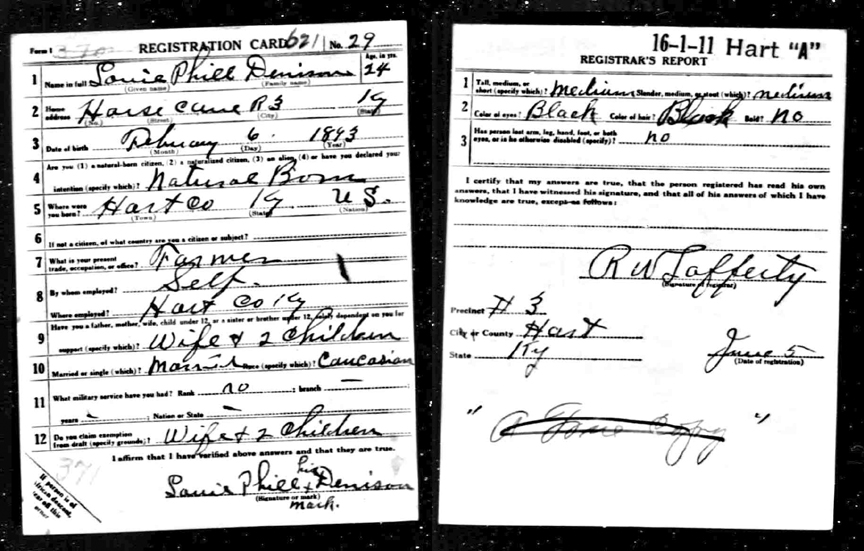 Form 1 370 REGISTRATION CARD 621 No. 29
1 Name in full Louie Phill Denison Age, in yrs. 24
(Given name) (Family name)
2 Home address Horse Cave R 3 Ky
(No.) (Street) (City) (State)
3 Date of birth February 6 1893
(Month) (Day) (Year)
4 Are you (1) a natural-born citizen, (2) a naturalized citizen, (3) an alien, (4) or have you declared your
intention (specify which)? Natural Born
5 Where were you born? Hart Co Ky U S.
(Town) (State) (Nation)
6 If not a citizen, of what country are you a citizen or subject?
7 What is your present trade, occupation, or office? Farmer
8 By whom employed? Self.
Where employed? Hart Co Ky
9 Have you a father, mother, wife, child under 12, or a sister or brother under 12, solely dependent on you for
support (specify which)? Wife & 2 Children
10 Married or single (which)? Married Race (specify which)? Caucasian
11 What military service have you had? Rank no ; branch —
years — ; Nation or State —
12 Do you claim exemption from draft (specify grounds)? Wife & 2 Children
I affirm that I have verified above answers and that they are true.
371
Louie Phill his x Denison
(Signature or mark)
mark.
If person is of
African descent,
tear off this
corner
16-1-11 Hart "A"
REGISTRAR'S REPORT
1 Tall, medium, or short (specify which)? Medium Slender, medium, or stout (which)? medium
2 Color of eyes? Black Color of hair? Black Bald? No
3 Has person lost arm, leg, hand, foot, or both eyes, or is he otherwise disabled (specify)? no
I certify that my answers are true, that the person registered has read his own
answers, that I have witnessed his signature, and that all of his answers of which I have
knowledge are true, except as follows:
R W Lafferty
(Signature of registrar)
Precinct # 3
City or County Hart
State Ky June 5
(Date of registration)
" A True Copy "